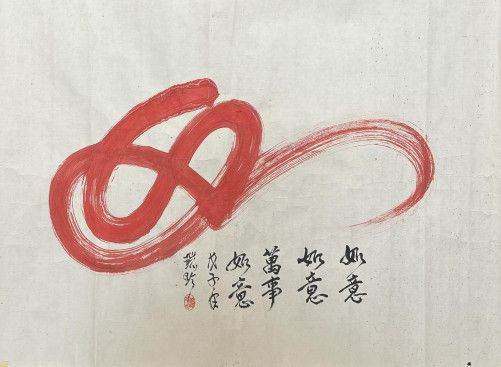 如意
如意
萬事
如意
戊子年
瑞珍